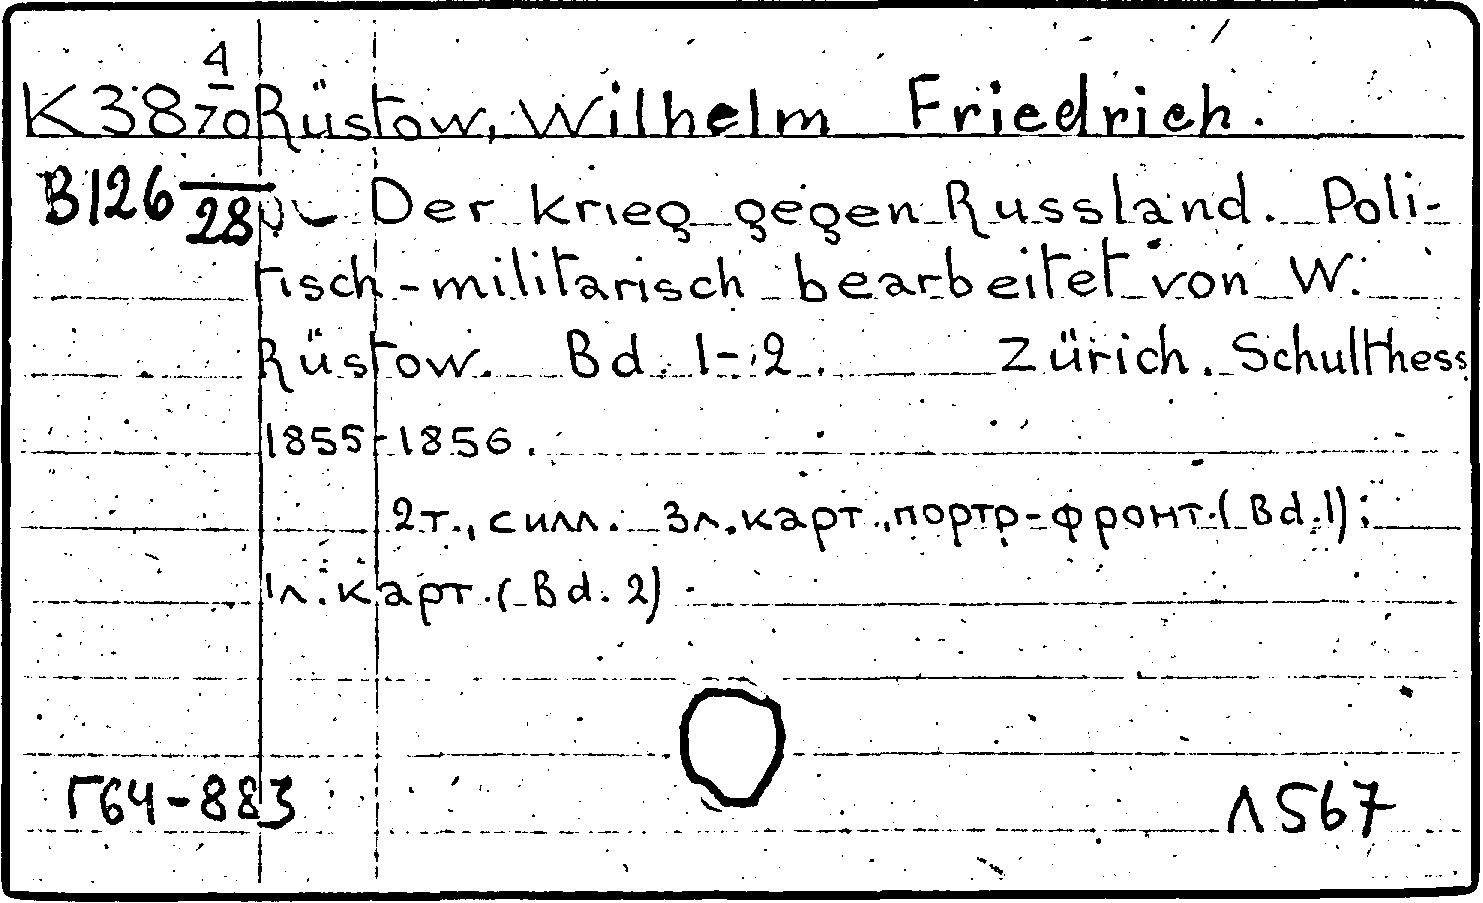 K 38 4/70 Rüstow, Wilhelm Friedrich.
B126/28 Der krieg gegen Russland. Poli-
tisch-militarisch bearbeitet von W.
Rüstow. Bd. 1-2. Zürich. Schulthess
1855-1856.
2т., силл. 3л.карт.,портр-фронт.(Bd.1);
1л.карт.(Bd. 2)
Г64-883
Л567